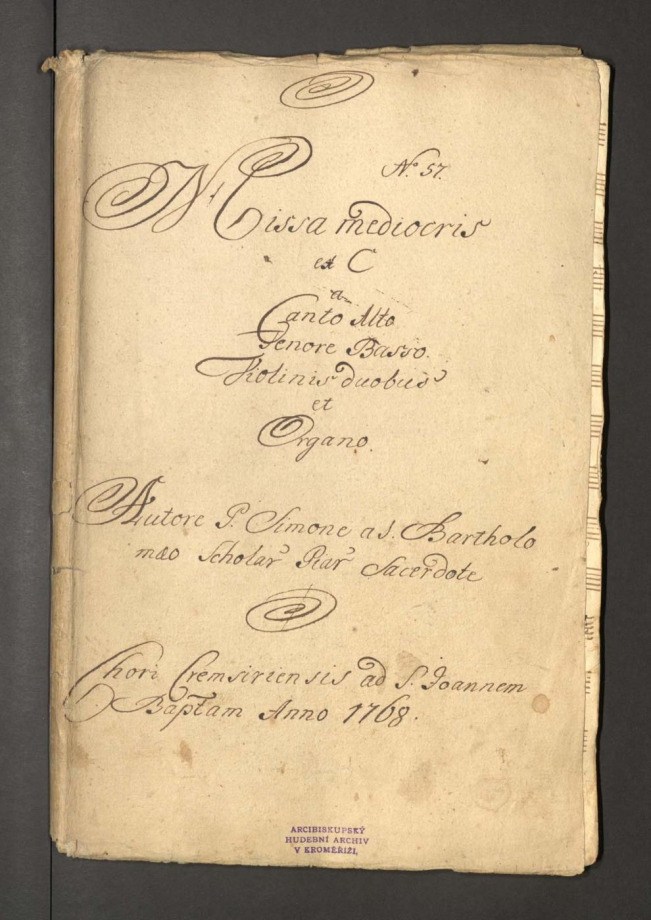 No. 57.
Missa mediocris
ex C
a
Canto Alto
Tenore Basso.
Violinis duobus
et
Organo.
Autore P. Simone a S. Bartholo
mæo Scholar Piar Sacerdote
Chori Cremsiriensis ad S. Joannem
Baptam Anno 1768.
ARCIBISKUPSKÝ
HUDEBNÍ ARCHIV
V KROMĚŘÍŽI.